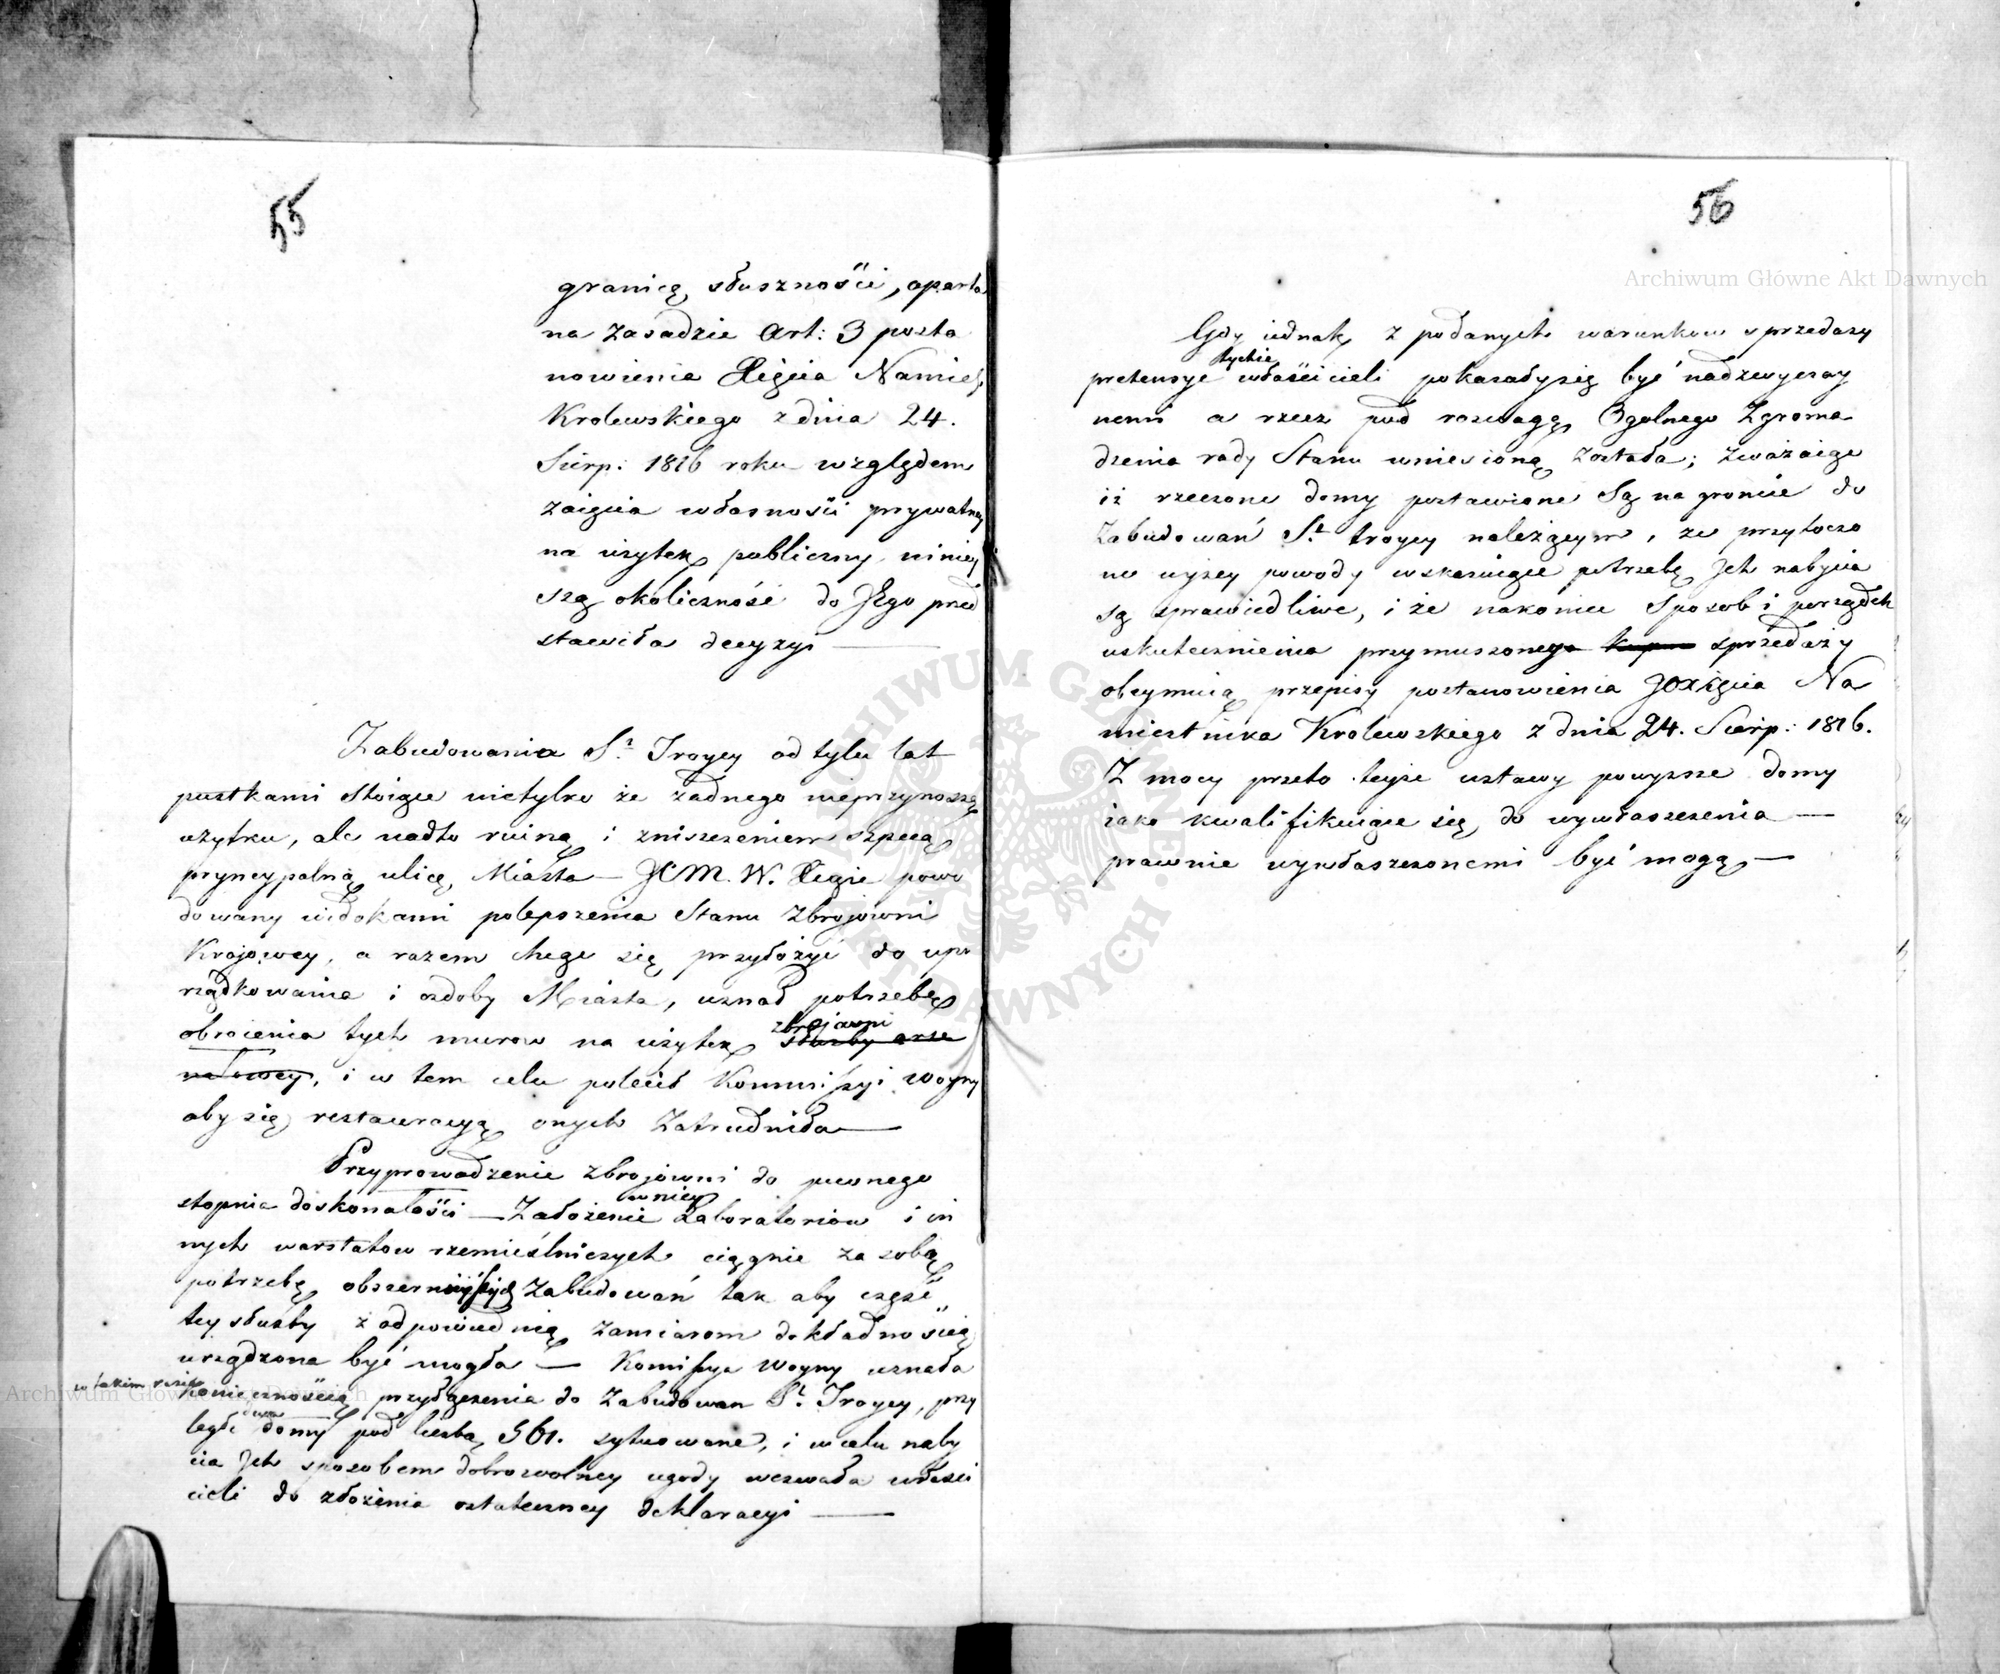 55
granicę słuszności, oparta
na zasadzie Art: 3 posta
nowienia Xięcia Namies
Krolewskiego z dnia 24.
Sierp: 1816 roku względem
zaięcia własności prywatney
na użytek publiczny niniey
szą okoliczność do JEgo przed
stawiła decyzyi —
Zabudowania St. Troycy od tylu lat
pustkami stoiące nietylko że żadnego nieprzynoszą
użytku, ale nadto ruiną i zniszczeniem szpecą
pryncypalną ulicę Miasta — JCM. W. Xiąże powo
dowany widokami polepszenia Stanu Zbrojowni
Krajowey, a razem chcąc się przyłożyć do upo
rządkowania i ozdoby Miasta, uznał potrzebę
zbrojowni
obrócenia tych murow na użytek służby arse
nałowey, i w tem celu polecił Kommissyi Woyny
aby się restauracyą onych zatrudniła —
Przyprowadzenie zbrojowni do pewnego
w niey
stopnia doskonałości — Założenie Laboratoriow i in
nych warstatow rzemieślniczych ciągnie za sobą
potrzebę obszernieyszych Zabudowań tak aby część
tey służby z odpowiednią zamiarom dokładnością
urządzona być mogła — Komissya Woyny uznała
w takim razie
koniecznością przyłączenia do Zabudowan St. Troycy, przy
dwa
ległe domy pod liczbą 561. sytuowane, i w celu naby
cia Jch sposobem dobrowolney ugody wezwała właści
cieli do złożenia ostateczney deklaracyi —
56
Archiwum Główne Akt Dawnych
Gdy iednak z podanych warunkow sprzedaży
tychże
pretensye właścicieli pokazały się być nadzwyczay
nemi a rzecz pod rozwagę Ogolnego Zgroma
dzenia rady Stanu wniesioną została; zważaiąc
iż rzeczone domy postawione są na groncie do
Zabudowań St. troycy należącym, że przytoczo
ne wyżey powody wskazuiące potrzebę Jch nabycia
są sprawiedliwe, i że nakoniec sposob i porządek
uskutecznienia przymuszonego kupna sprzedaży
obeymuią przepisy postanowienia JOXięcia Na
miestnika Krolewskiego z dnia 24. Sierp: 1816.
Z mocy przeto teyże ustawy powyższe domy
iako kwalifikuiące się do wywłaszczenia —
prawnie wywłaszczonemi być mogą —
ARCHIWUM GŁÓWNE AKT DAWNYCH
Archiwum Główne Akt Dawnych